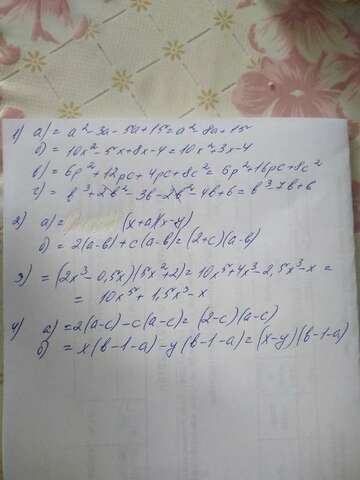 1) а) = a²-3a-5a+15=a²-8a+15
б) = 10x²-5x+8x-4=10x²+3x-4
в) = 6p²+12pc+4pc+8c²=6p²+16pc+8c²
г) = b³+2b²-3b-2b²-4b+6=b³-7b+6
2) а) = (x+a)(x-y)
б) = 2(a-b)+c(a-b)=(2+c)(a-b)
3) =(2x³-0,5x)(5x²+2)=10x⁵+4x³-2,5x³-x=
= 10x⁵+1,5x³-x
4) а) =2(a-c)-c(a-c)=(2-c)(a-c)
б) = x(b-1-a)-y(b-1-a)=(x-y)(b-1-a)